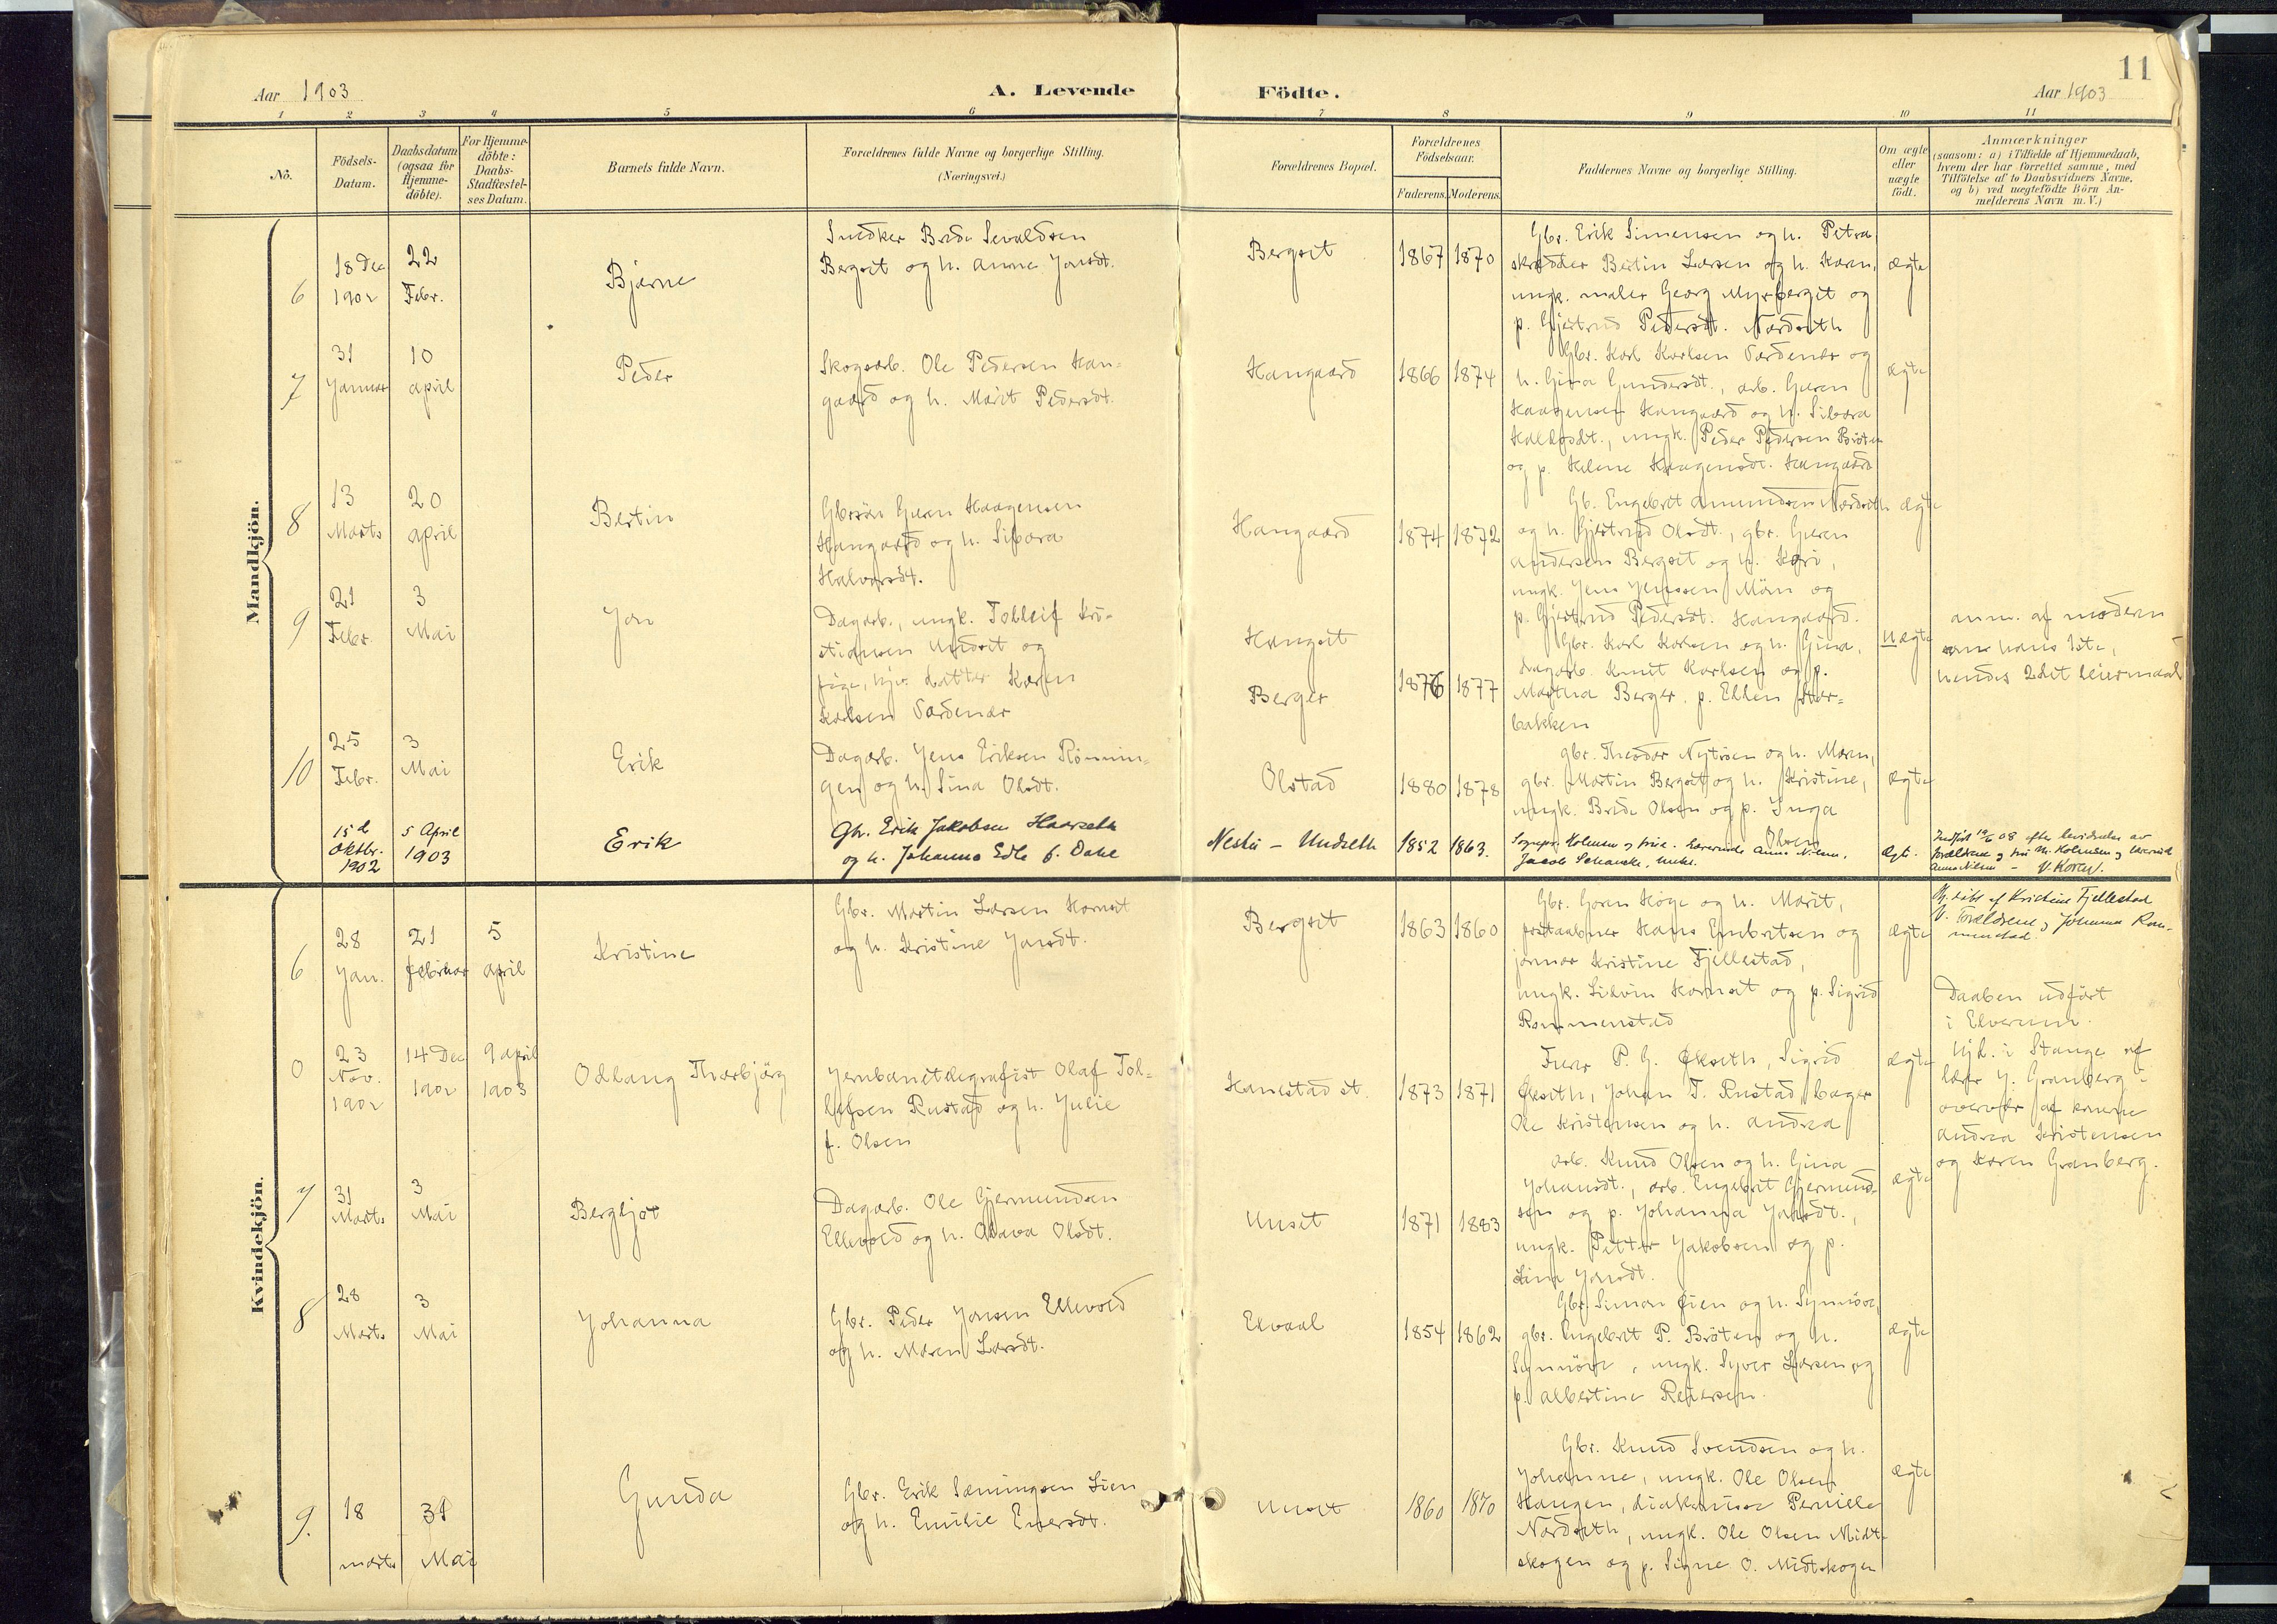 11
Aar 1903
A. Levende
Födte.
Aar 1903
1 2 3 4 5 6 7 8 9 10 11
No.
Födsels-
Datum.
Daabsdatum
(ogsaa for
Hjemme-
döbte).
For Hjemme-
döbte:
Daabs-
Stadfæstel-
ses Datum.
Barnets fulde Navn.
Forældrenes fulde Navne og borgerlige Stilling.
(Næringsvei.)
Forældrenes Bopæl.
Forældrenes
Födselsaar.
Faderens. Moderens.
Faddernes Navne og borgerlige Stilling.
Om ægte
eller
uægte
födt.
Anmærkninger
(saasom: a) i Tilfælde af Hjemmedaab,
hvem der har forrettet samme, med
Tilföielse af to Daabsvidners Navne.
og b) ved uegtefödte Börn An-
melderens Navn m. V.)
Mandkjön.
6
18 Dec
1902
22
Febr.
Bjarne
Snedker Brede Sevaldsen
Bergset og h. Anne Jonsdt.
Bergset
1867 1870
Gbr. Erik Simensen og h. Petra,
skrædder Bertin Larsen og h. Karen,
ungk. maler Georg Myrberget og
p. Gjertrud Pedersdt. Nordseth
ægte
7
31
Januar
10
april
Peder
Skogsarb. Ole Pedersen Han-
gaard og h. Marit Pedersdt.
Hangaard
1866 1874
Gbr. Karl Karlsen Sordenær og
h. Gina Gundersdt., arb. Gøren
Haagensen Hangaard og h. Sibara
Halvorsdt., ungk. Peder Pedersen Bråten
og p. Helene Haagensdt. Hangaard
ægte
8
13
Marts
20
april
Bertin
Gbrsön Gøren Haagensen
Hangaard og h. Sibara
Halvorsdt.
Hangaard
1874 1872
Gb. Engebret Amundsen Nordseth
og h. Gjertrud Olsdt., gbr. Gøren
Andersen Bergset og h. Kari,
ungk. Jens Jensen Möen og
p. Gjertrud Pedersdt. Hangaard.
ægte
9
21
Febr.
3
Mai
Jon
Dagarb., ungk. Tolleif Kri-
stiansen Undset og
pige, hjv. datter Karen
Karlsen Sordenær
Hangset
Berger
1876 1877
Gbr. Karl Karlsen og h. Gina,
dagarb. Knut Karlsen og p.
Martha Berger, p. Ellen Stor-
bakken
uægte
anm. af moderen
som hans 1ste,
hendes 2det leiermaal
10
25
Febr.
3
Mai
Erik
Dagarb. Jens Eriksen Rönnin-
gen og h. Sina Olsdt.
Olstad
1880 1878
gbr. Theodor Nytröen og h. Maren,
gbr. Martin Bergset og h. Kristine,
ungk. Brede Olsen og p. Inga
Olsen
ægte
15d
Oktbr.
1902
5 April
1903
Erik
Gbr. Erik Jakobsen Haarseth
og h. Johanna Edle f. Dahl
Nestu - Undseth
1852 1863.
Sognepr. Holmsen og frue. Lærerinde Anna Nilsen.
Jacob Schancke, unke.
ægt.
Indført 19/6 08 efter bevidnelse av
forældrene og fru M. Holmsen og lærerinde
Anna Nilsen - V. Koren.
Kvindekjön.
6
28
Jan.
21
februar
5
april
Kristine
Gbr. Martin Larsen Hornset
og h. Kristine Jonsdt.
Bergset
1863 1860
Gbr. Goren Hoge og h. Marit,
postaabner Hans Embretsen og
jormor Kristine Fjellestad,
ungk. Silvin Hornset og p. Sigrid
Rommenstad
ægte
Hj. døbt af Kristine Fjellestad
V. Forældrene og Johanna Rom-
menstad
0
23
Nov.
1902
14 Dec
1902
9 april
1903
Odlaug Thorbjörg
Jernbanetelegrafist Olaf Tol-
lefsen Rustad og h. Julie
f. Olsen
Hanestad st.
1873 1871
Fruer P. G. Økseth, Sigrid
Økseth, Johan T. Rustad, bager
Ole Kristensen og h. Andrea
ægte
Daaben udført
i Elverum.
Hjd. i Stange af
lærer J. Granberg i
overvær af konerne
Andrea Kristensen
og Karen Granberg.
7
31
Marts
3
Mai
Bergljot
Dagarb. Ole Gjermundsen
Ellevold og h. Olava Olsdt.
Unset
1871 1883
arb. Knud Olsen og h. Gina
Johansdt., arb. Engebret Gjermund-
sen og p. Johanna Jonsdt.,
ungk. Petter Jakobsen og p.
Lina Jonsdt.
ægte
8
28
Marts
3
Mai
Johanna
Gbr. Peder Jonsen Ellevold
og h. Maren Larsdt.
Elvaal
1854 1862
Gbr. Simon Øien og h. Synnöve,
gbr. Engebret P. Bröten og h.
Synnöve, ungk. Syver Larsen og
p. Albertine Pedersen.
ægte
9.
18
marts
31
Mai
Gunda
Gbr. Erik Sæmingsen Lien
og h. Emilie Eversdt.
Unset
1860 1870
Gbr. Knud Svendsen og h.
Johanne, ungk. Ole Olsen
Haugen, diakonisse Pernille
Nordseth, ungk. Ole Olsen Midt-
skogen og p. Signe O. Midtskogen
ægte